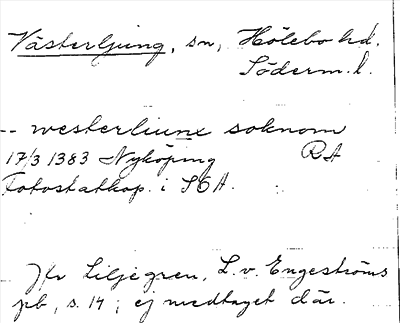 Västerljung, sn, Hölebo hd.
Söderm. l.
-- westerliunx soknom
17/3 1383 Nyköping RA
Fotostatkop. i SOA.
Jfr Liljegren, L. v. Engeströms
pb, s. 14; ej medtaget där.